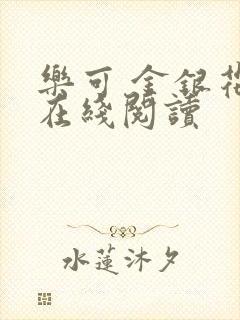 樂可 金銀花
在綫閱讀
水蓮沐夕